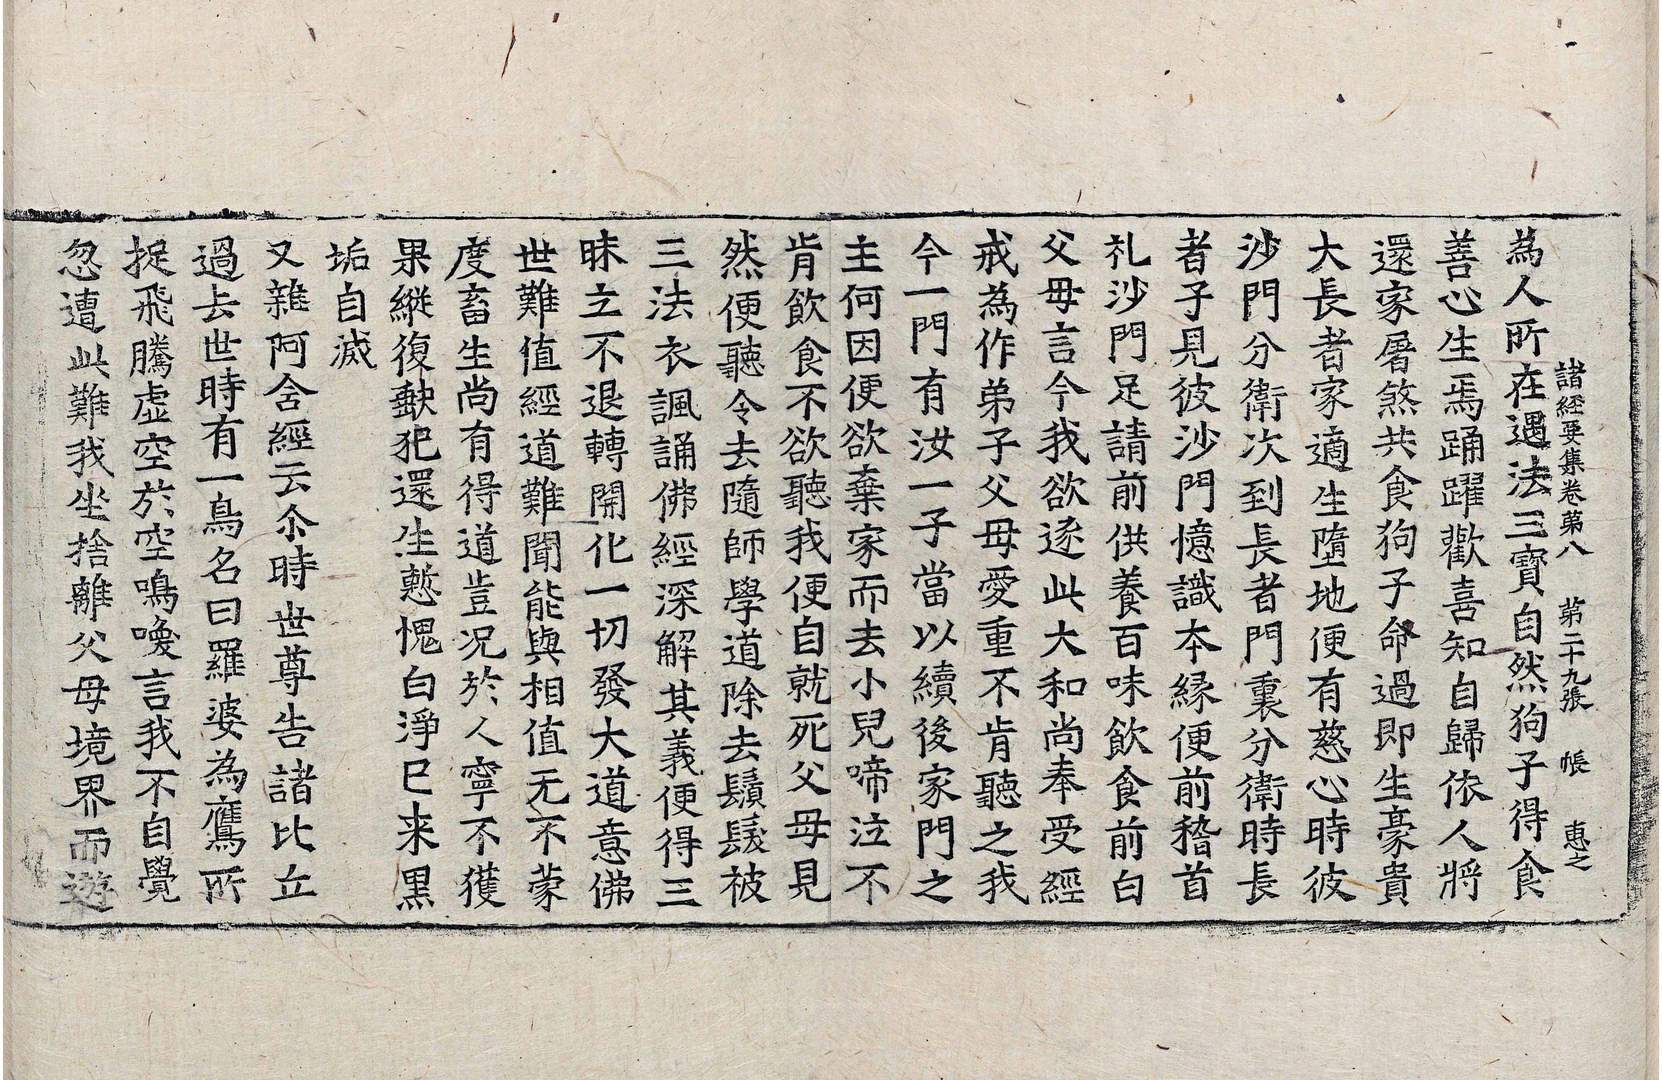 諸經要集卷第八　第二十九張　帳　惠之
為人所在遇法三寶自然狗子得食
善心生焉踊躍歡喜知自歸依人將
還家屠煞共食狗子命過即生豪貴
大長者家適生墮地便有慈心時彼
沙門分衛次到長者門裏分衛時長
者子見彼沙門憶識本緣便前稽首
礼沙門足請前供養百味飲食前白
父母言今我欲逐此大和尚奉受經
戒為作弟子父母愛重不肯聽之我
今一門有汝一子當以續後家門之
主何因便欲棄家而去小兒啼泣不
肯飲食不欲聽我便自就死父母見
然便聽令去隨師學道除去鬚髮被
三法衣諷誦佛經深解其義便得三
昧立不退轉開化一切發大道意佛
世難值經道難聞能與相值无不蒙
度畜生尚有得道豈况於人寧不獲
果縱復缺犯還生慙愧白淨已来黑
垢自滅
又雜阿含經云尒時世尊告諸比丘
過去世時有一鳥名曰羅婆為鷹所
捉飛騰虛空於空鳴喚言我不自覺
忽遭此難我坐捨離父母境界而遊